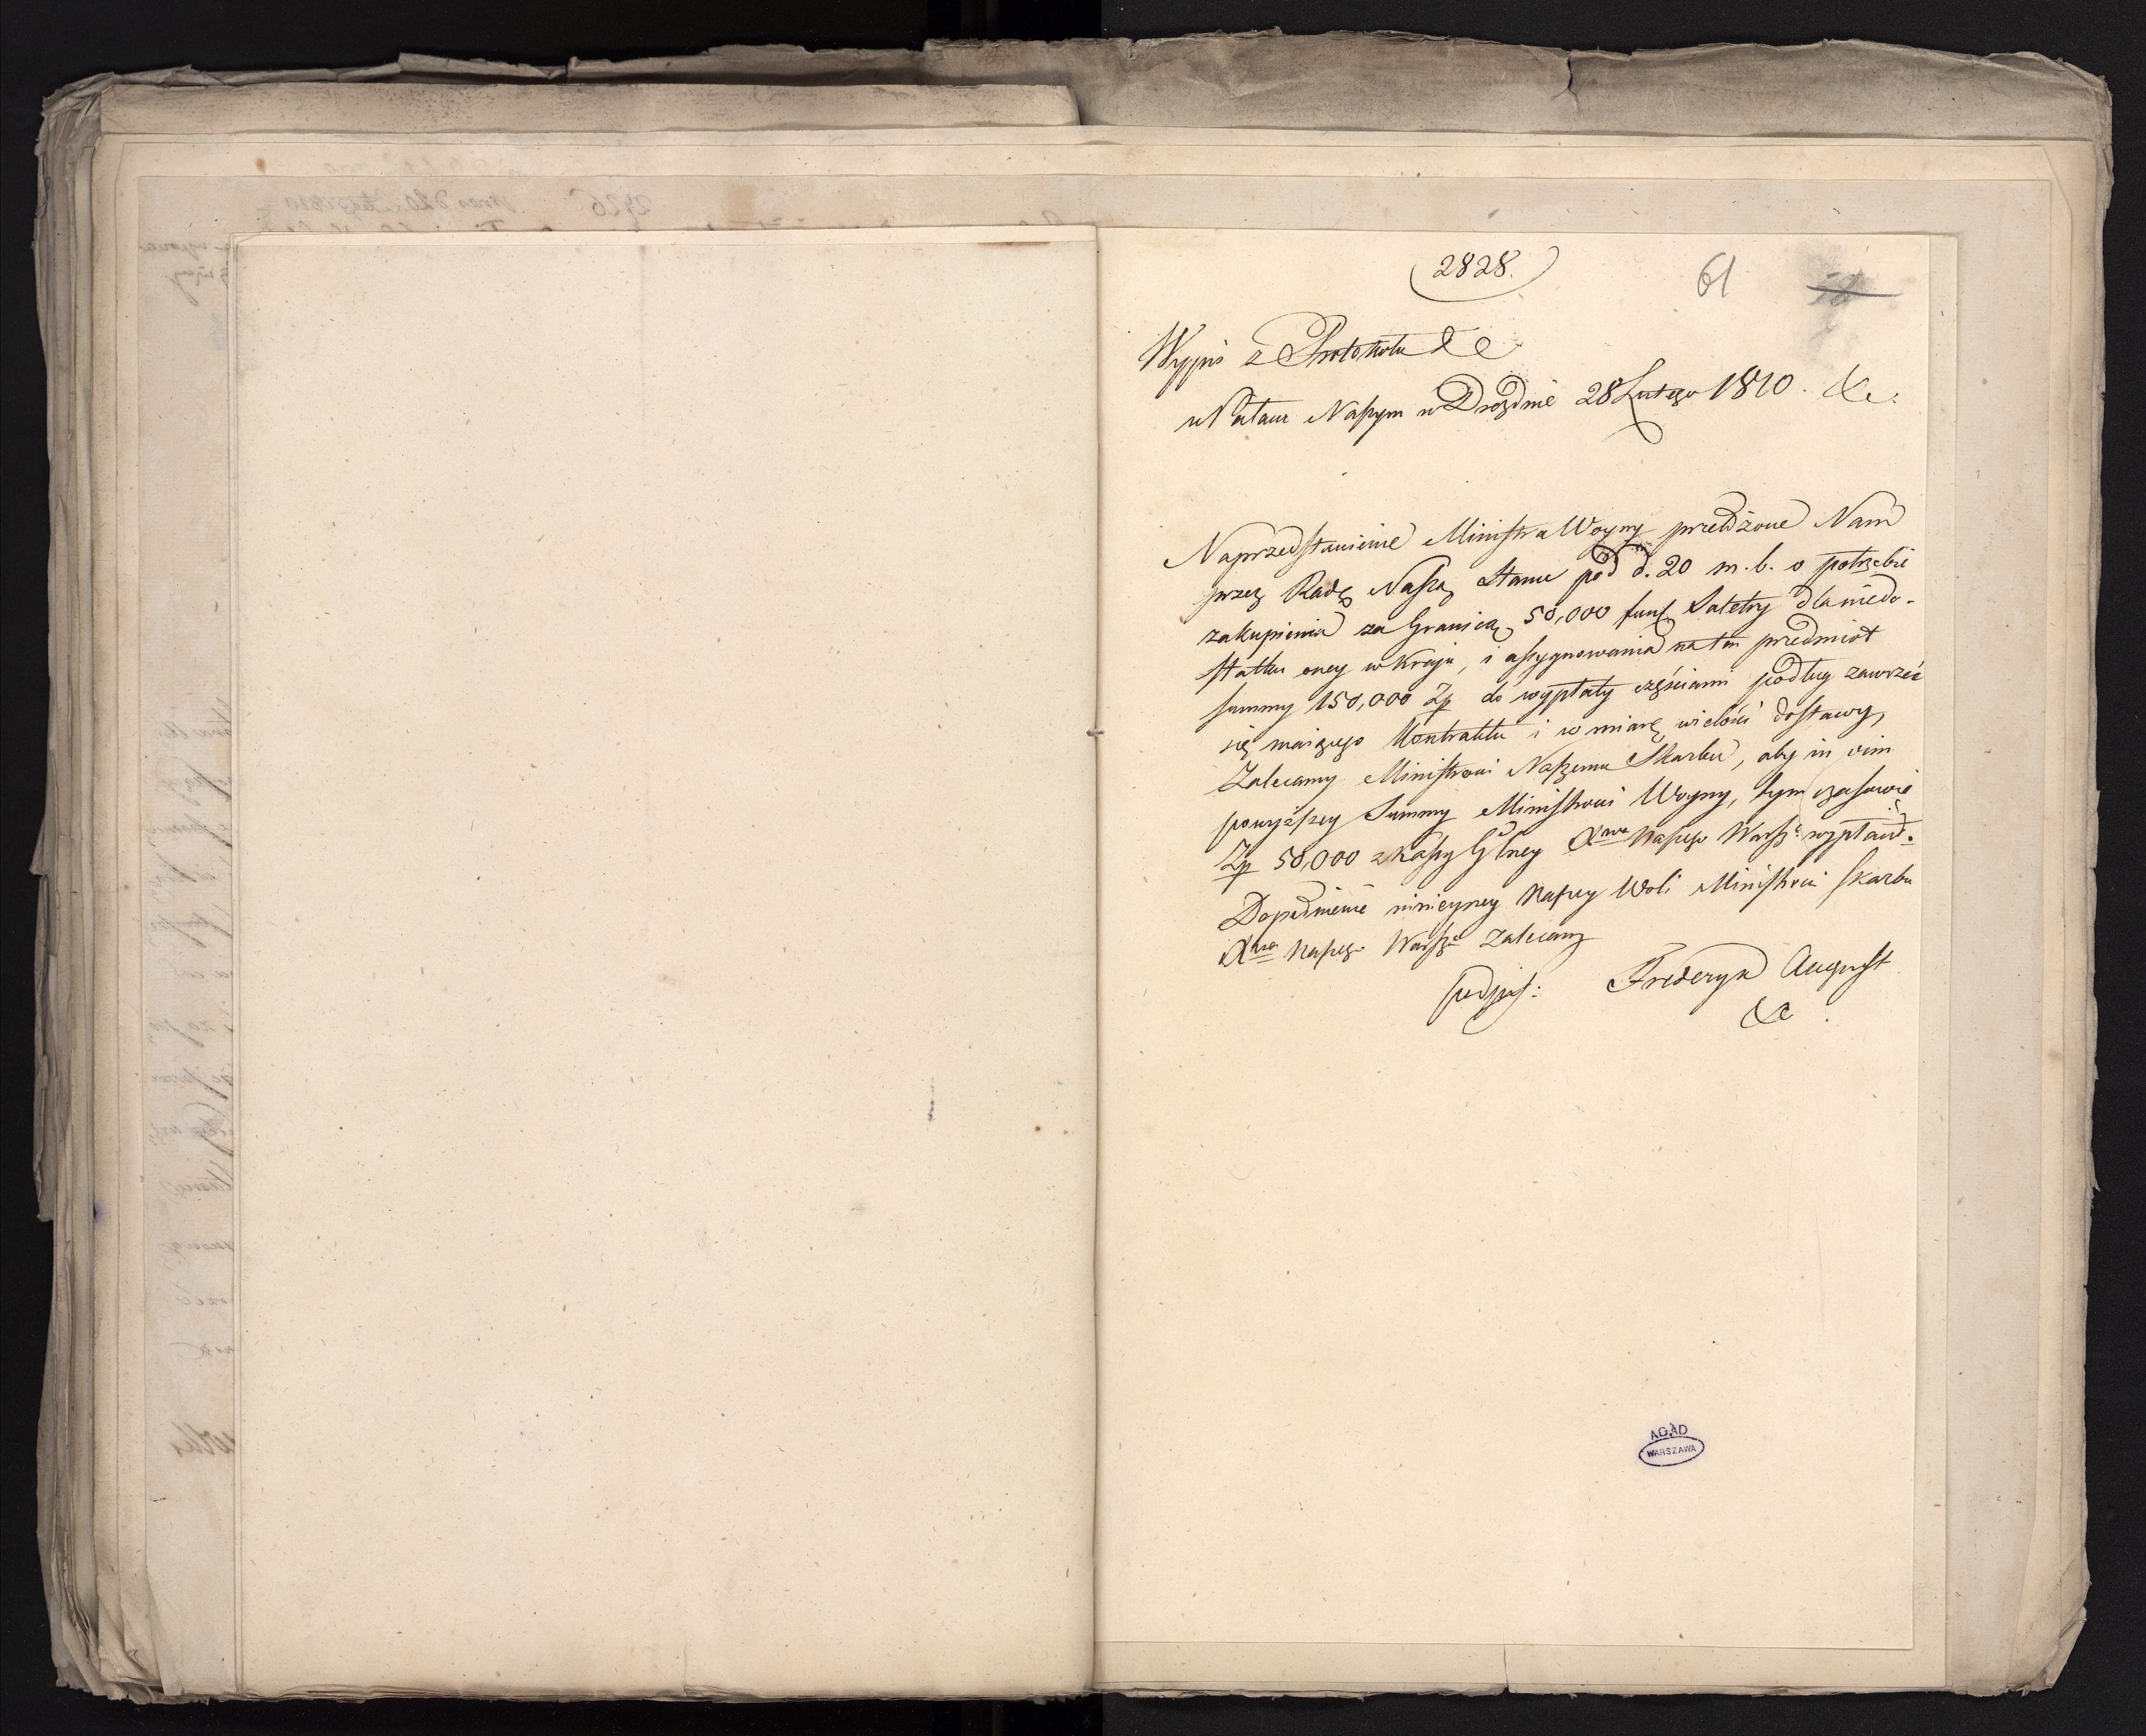 2828.
61
58
Wypis z Protokołu &c
w Pałacu Naszym w Dreźnie 28 Lutego 1810. &c.
Na przedstawienie Ministra Woyny przełożone Nam
przez Radę Naszą Stanu pod d. 20 m. b. o potrzebie
zakupienia za Granicą 50,000 funt. Saletry dla niedo-
statku oney w Kraju, i assygnowania na ten przedmiot
summy 150,000 Zp do wypłaty częściami podług zawrzeć
się maiącego Kontraktu i w miarę wielości dostawy,
Zalecamy Ministrowi Naszemu Skarbu, aby in vim
powyższey Summy Ministrowi Woyny, tym czasowie
Zp 50,000 z Kassy Głney Xwa Naszego Warszo wypłacił.
Dopełnienie ninieyszey Naszey Woli Ministrowi Skarbu
Xwa Naszego Warszo zalecamy
podpis: Frederyk August
&c.
AGAD
WARSZAWA